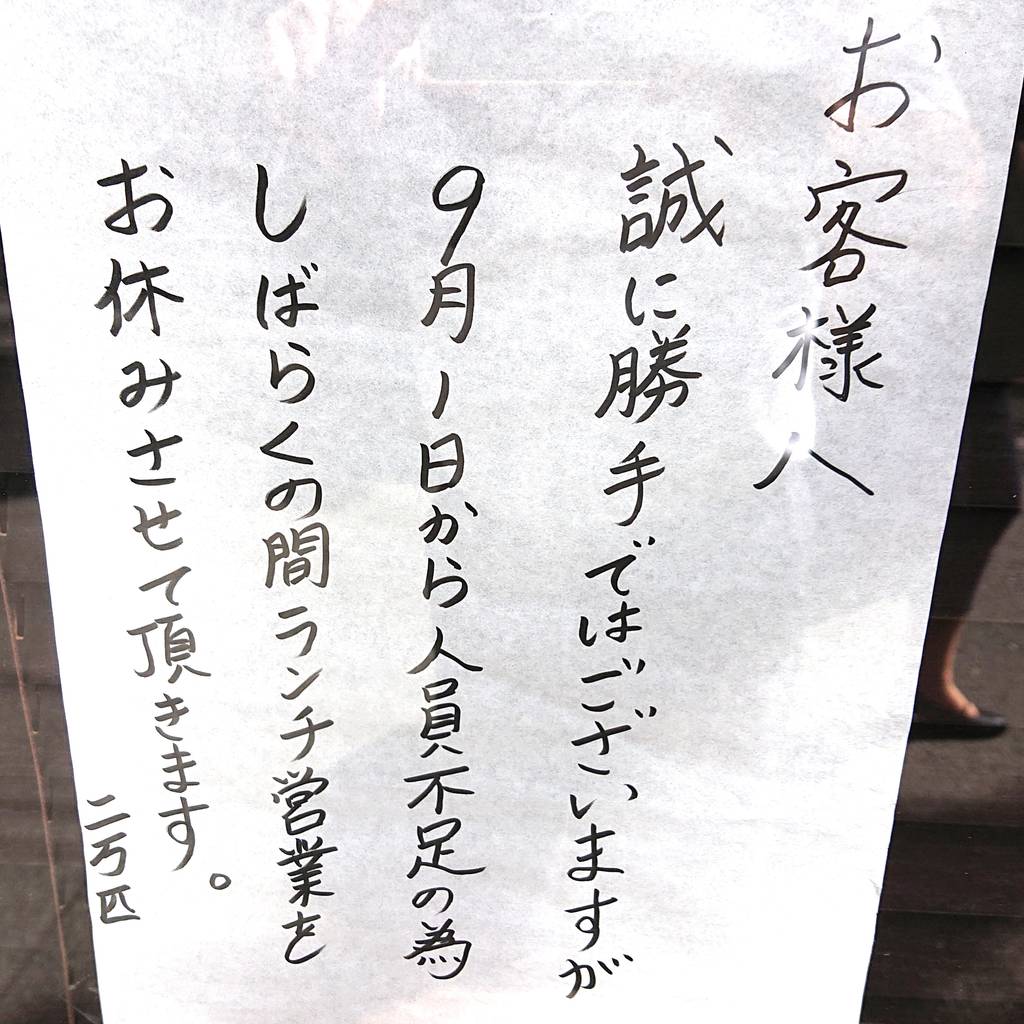 お客様へ
誠に勝手ではございますが
9月1日から人員不足の為
しばらくの間ランチ営業を
お休みさせて頂きます。
二万匹